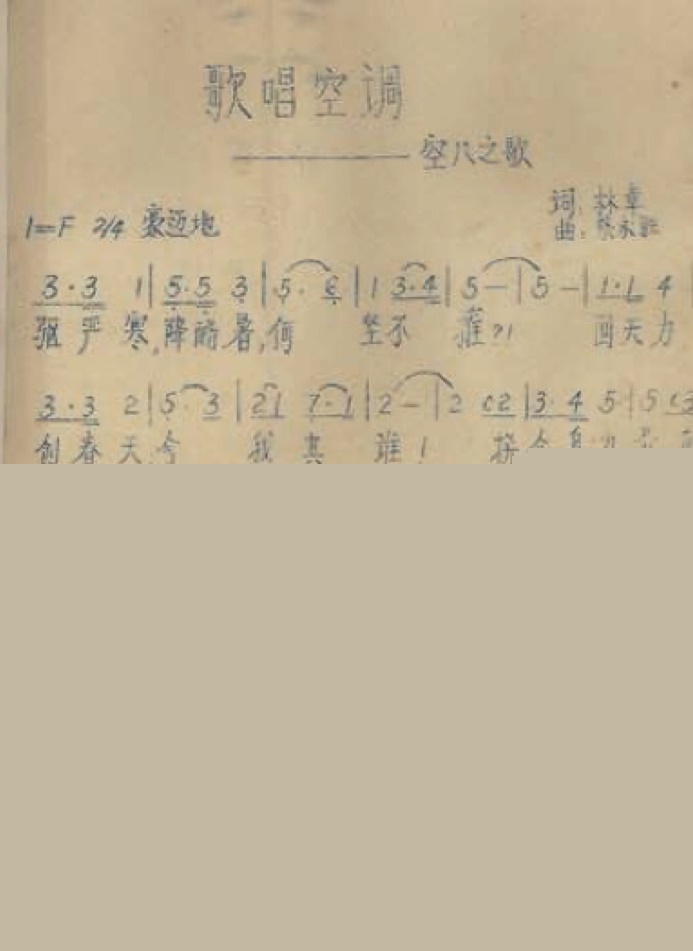 歌唱空调
——空八之歌
词: 林章
1=F 2/4 豪迈地 曲: 永
3·3 1|5·5 3|5· 6|1 3·4|5-|5-|1·1 4
驱严寒,降酷暑,何坚不摧?! 回天力
3·3 2|5· 3|21 7·1|2-|2 02|3·4 5|5 03
创春天,今我其谁! 拼全身